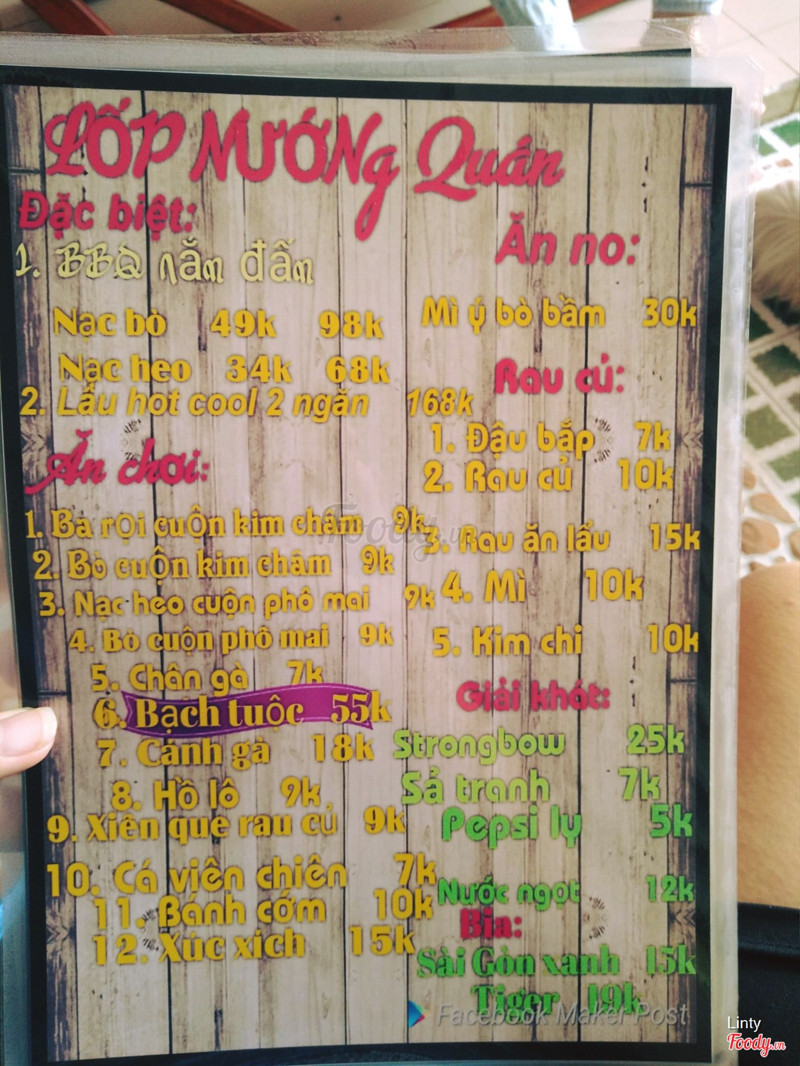 LỐP NƯỚNG Quán
Đặc biệt:
1. BBQ nắm đấm
Nạc bò 49k 98k
Nạc heo 34k 68k
2. Lẩu hot cool 2 ngăn 168k
Ăn chơi:
1. Ba rọi cuộn kim châm 9k
2. Bò cuộn kim châm 9k
3. Nạc heo cuộn phô mai 9k
4. Bò cuộn phô mai 9k
5. Chân gà 7k
6. Bạch tuộc 55k
7. Cánh gà 18k
8. Hồ lô 9k
9. Xiên que rau củ 9k
10. Cá viên chiên 7k
11. Bánh cớm 10k
12. Xúc xích 15k
Ăn no:
Mì ý bò bầm 30k
Rau củ:
1. Đậu bắp 7k
2. Rau củ 10k
3. Rau ăn lẩu 15k
4. Mì 10k
5. Kim chi 10k
Giải khót:
Strongbow 25k
Sả tranh 7k
Pepsi ly 5k
Nước ngọt 12k
Bia:
Sài Gòn xanh 15k
Tiger 19k
Facebook Maker Post
Foody.vn
Linty
Foody.vn